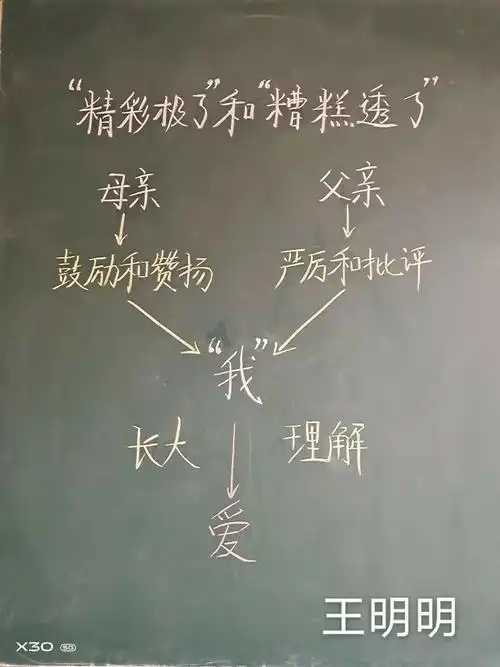 “精彩极了”和“糟糕透了”
母亲 父亲
鼓励和赞扬 严厉和批评
“我”
长大 理解
爱
王明明
X30 5G